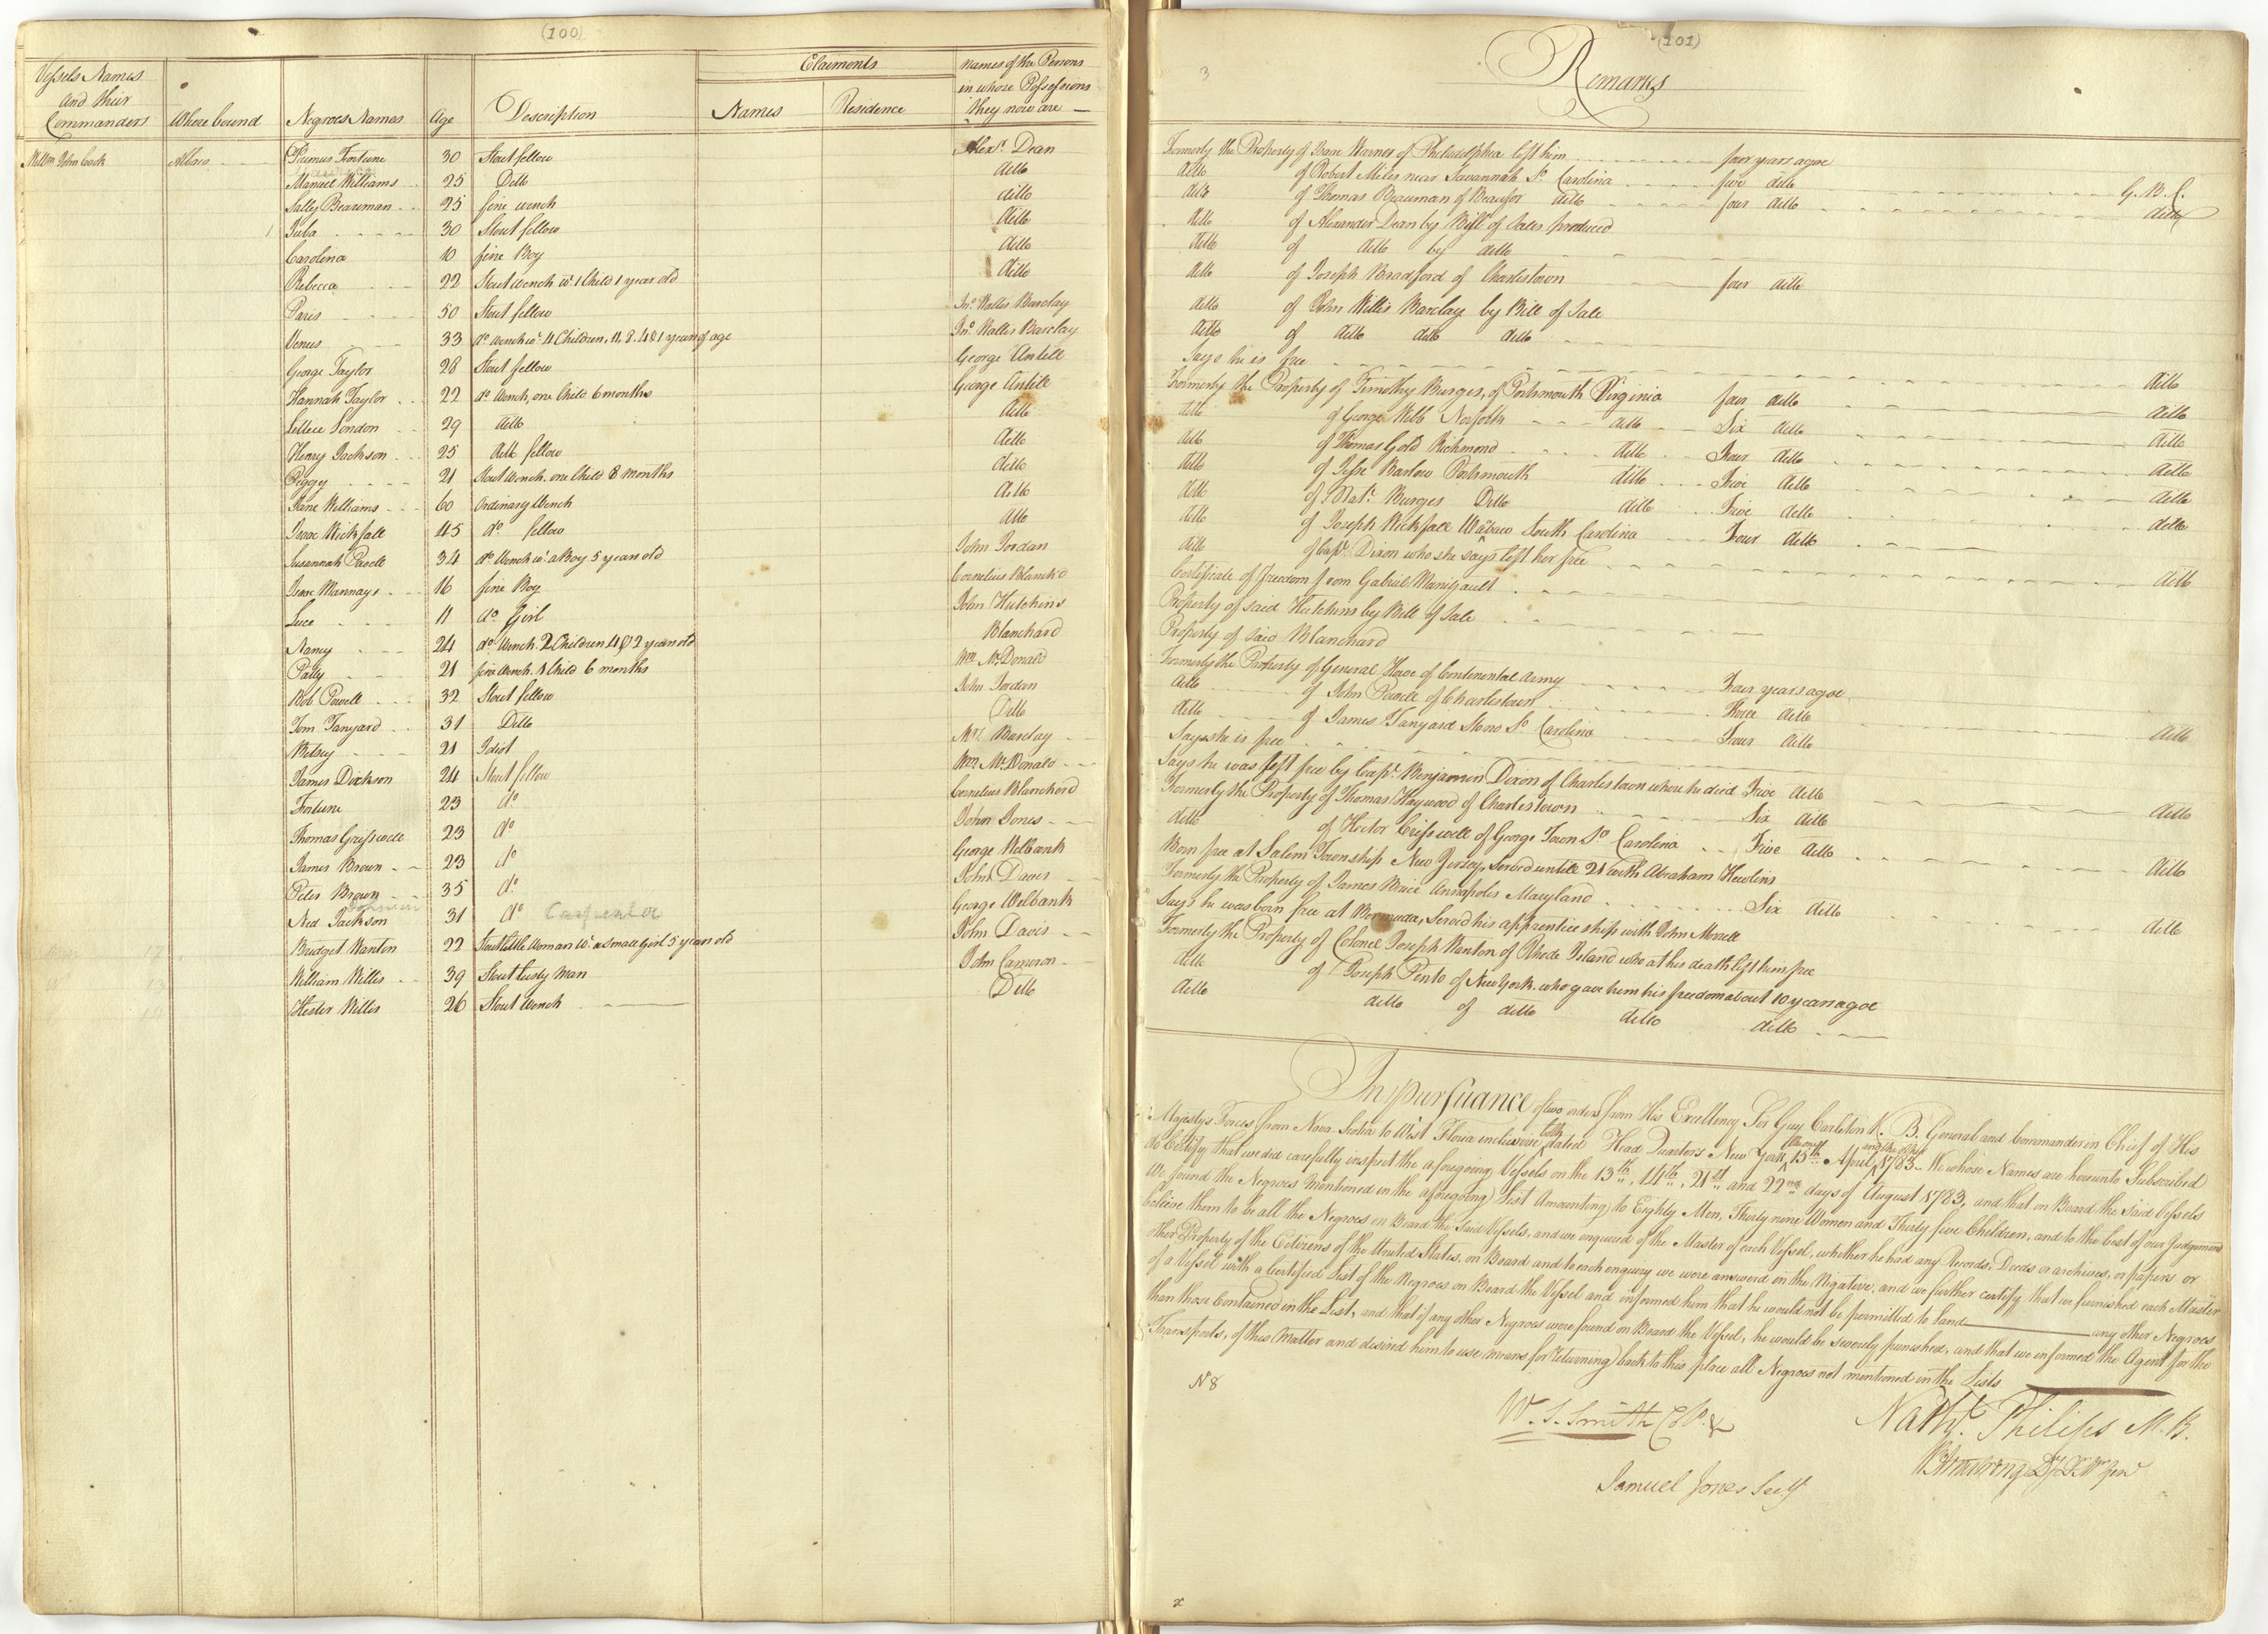 (100)
Vessels Names and their Commanders
Where bound
Negroes Names
Age
Description
Claiments
Names
Residence
Names of the Persons in whose Possessions they now are
John Cock Abaco Primus Fortune 30 Stout fellow Alexr. Dean
Manuel Williams 25 Ditto ditto
Sally Beauman 25 fine wench ditto
Juba 30 Stout fellow ditto
Carolina 10 fine Boy ditto
Rebecca 22 Stout wench wt. 1 Child 1 year old ditto
Paris 50 Stout fellow Jno. Wallis Barclay
Venus 33 do. wench wt. 4 Children, 11, 8, 4 & 1 years of age Jno. Wallis Barclay
George Taylor 28 Stout fellow George Antill
Hannah Taylor 22 do. Wench, one Child 6 months George Antill
London 29 ditto ditto
Henry Jackson 25 ditto fellow ditto
Peggy 21 Stout Wench. one Child 8 months ditto
Jane Williams 60 Ordinary Wench ditto
Isaac Wickfall 45 do. fellow ditto
Susannah 34 do. Wench wt. a Boy 5 year old John Jordan
Isaac 16 fine Boy Cornelius Blanch'd
Luce 11 do. Girl John Hutchins
Nancy 24 do. Wench. 2 Children 4 & 2 year old Blanchard
Patty 21 fine Wench. 1 Child 6 months Wm. McDonald
Bob Powell 32 Stout fellow John Jordan
Tom Tanyard 31 Ditto Ditto
Betsey 21 Idiot Mrs. Barclay
James Dickson 24 Stout fellow Wm. McDonald
Fortune 23 do. Cornelius Blanchard
Thomas Grisswell 23 do. John Jones
James Brown 23 do. George Welbank
Peter Brown 35 do. John Davis
Ned Jackson 31 do. Carpenter George Welbank
Bridget Wanton 22 Stout little Woman wt. a small girl 5 years old John Davis
William Willis 39 Stout lusty Man John Cameron
Hester Willis 26 Stout Wench Ditto
(101)
3
Remarks
Formerly the Property of Isaac Warner of Philadelphia left him four years agoe
ditto of Robert Miles near Savannah So. Carolina five ditto G. B. C.
ditto of Thomas Beauman of Beaufor ditto four ditto ditto
ditto of Alexander Dean by Bill of Sales produced
ditto of ditto by ditto
ditto of Joseph Bradford of Charlestown four ditto
ditto of John Willis Barclay by Bill of Sale
ditto of ditto ditto ditto
Says he is free ditto
Formerly the Property of Timothy Burges, of Portsmouth Virginia four ditto ditto
ditto of George Webb Norfolk ditto Six ditto ditto
ditto of Thomas Gold Richmond ditto Four ditto ditto
ditto of Jesse Barlow Portsmouth ditto Five ditto ditto
ditto of Natl. Burges Ditto ditto Five ditto ditto
ditto of Joseph Wickfall Wabaw South Carolina Four ditto
ditto of Capt. Dixon who she says left her free ditto
Certificate of freedom from Gabriel Manigault
Property of said Hutchins by Bill of Sale
Property of said Blanchard
Formerly the Property of General Howe of Continental Army Four years agoe
ditto of John Powell of Charlestown Three ditto
ditto of James Tanyard Stono So. Carolina Four ditto ditto
Says she is free
Says he was left free by Capt. Benjamin Dixon of Charlestown where he died Five ditto
Formerly the Property of Thomas Haywood of Charlestown Six ditto ditto
ditto of Hector Crisswell of George Town So. Carolina Five ditto
Born free at Salem Township New Jersey, Served untill 21 with Abraham Hewlins ditto
Formerly the Property of James Brice Annapolis Maryland Six ditto
Says he was born free at Bermuda, Served his apprenticeship with John Morrell ditto
Formerly the Property of Colonel Joseph Wanton of Rhode Island who at his death left him free
ditto of Joseph Pinto of New York who gave him his freedom about 10 years agoe
ditto ditto of ditto ditto ditto
In pursuance of two orders from His Excellency Sir Guy Carleton K. B. General and Commander in Chief of His
Majestys Forces from Nova Scotia to West Florida inclusive both dated Head Quarters New York 15th April 1783 We whose Names are hereunto Subscribed
do Certify that we did carefully inspect the aforegoing Vessels on the 13th, 14th, 21st and 22nd days of August 1783, and that on Board the said Vessels
We found the Negroes mentioned in the aforegoing List Amounting to Eighty Men, Thirty nine Women and Thirty five Children, and to the best of our Judgement
believe them to be all the Negroes on Board the said Vessels, and we enquired of the Master of each Vessel, whether he had any Records, Deeds or archives, or papers or
other Property of the Citizens of the United States, on Board and to each enquiry we were answerd in the Negative, and we further certify that we furnished each Master
of a Vessel with a Certified List of the Negroes on Board the Vessel and informed him that he would not be permitted to Land any other Negroes
than those Contained in the List, and that if any other Negroes were found on Board the Vessel, he would be severely punished, and that we informed the Agent for the
Transports, of this Matter and desired him to use means for returning back to this place all Negroes not mentioned in the Lists
No 8
W. S. Smith Col.
Nathl. Philips M. B.
Samuel Jones Secy